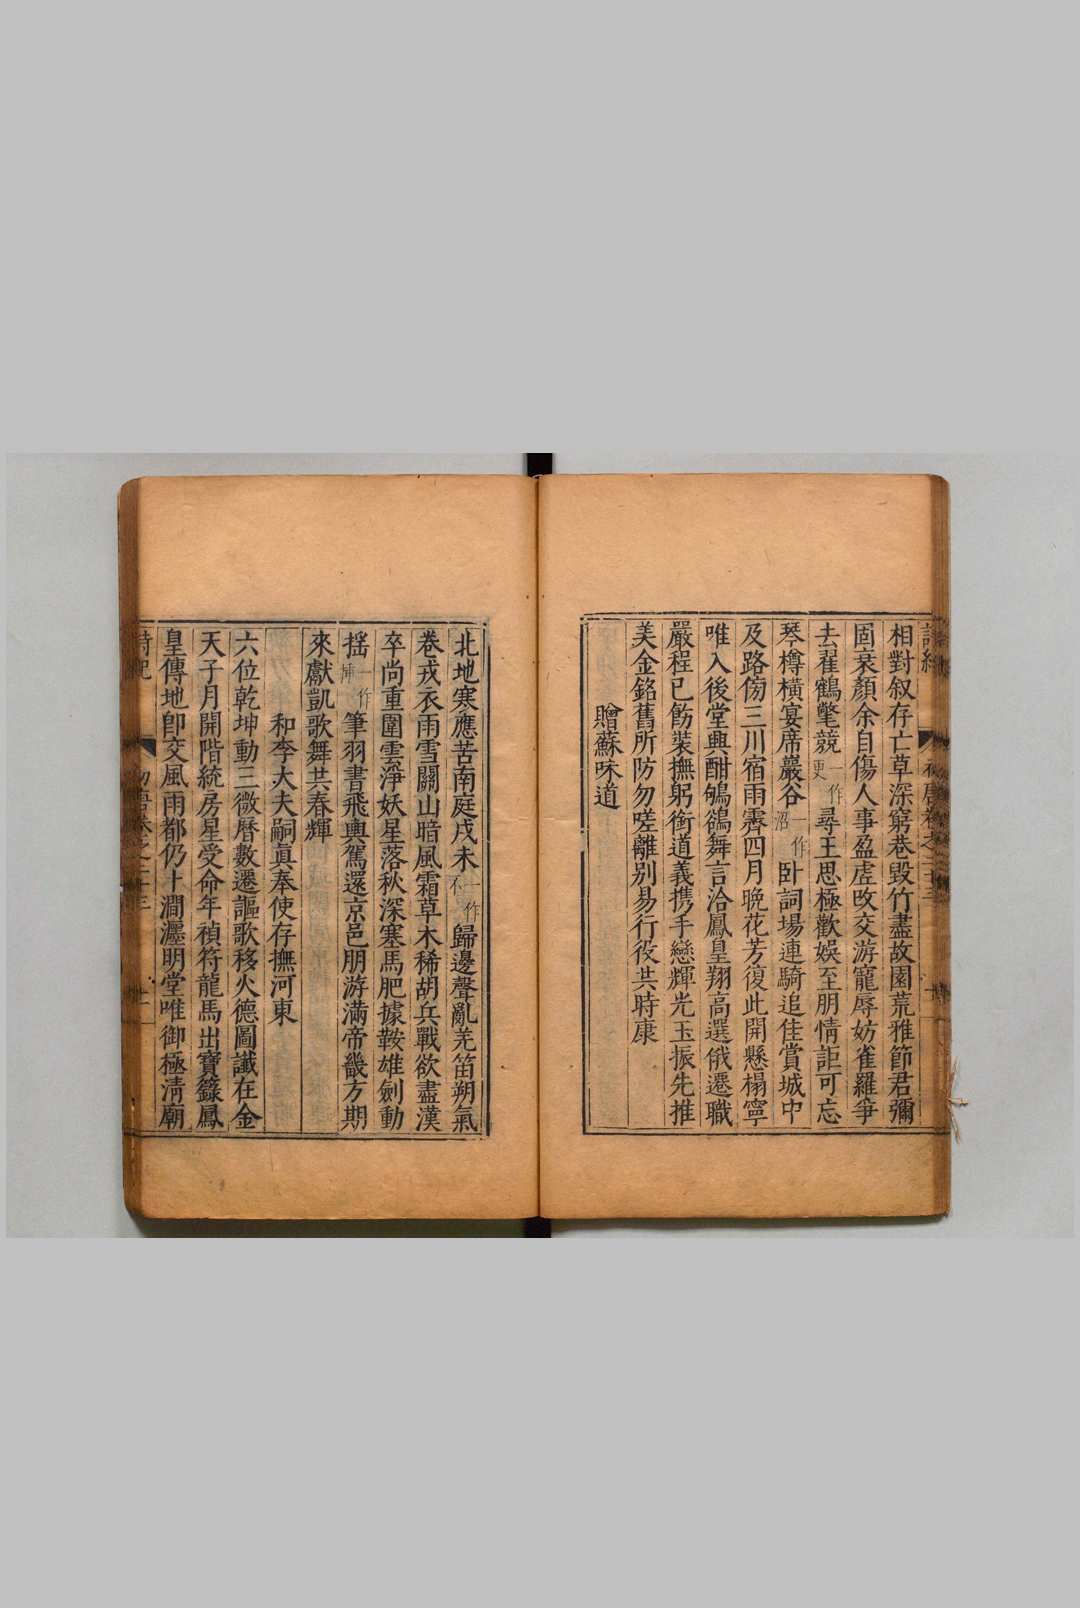 相對叙存亡草深窮巷毀竹盡故園荒雅節君彌
固衰顏余自傷人事盈虛改交游寵辱妨雀羅爭
去翟鶴氅競一作更尋王思極歡娛至朋情詎可忘
琴樽橫宴席巖谷一作沼卧詞場連騎追佳賞城中
及路傍三川宿雨霽四月晚花芳復此開懸榻寧
唯入後堂興酣鴝鵒舞言洽鳳皇翔高選俄遷職
嚴程已飭裝撫躬銜道義携手戀輝光玉振先推
美金銘舊所防勿嗟離別易行役共時康
贈蘇味道
北地寒應苦南庭戌未一作不歸邊聲亂羌笛朔氣
卷戎衣雨雪關山暗風霜草木稀胡兵戰欲盡漢
卒尚重圍雲淨妖星落秋深塞馬肥據鞍雄劍動
揺一作插筆羽書飛輿駕還京邑朋游滿帝畿方期
來獻凱歌舞共春輝
和李大夫嗣真奉使存撫河東
六位乾坤動三微曆數遷謳歌移火德圖讖在金
天子月開階統房星受命年禎符龍馬出寶籙鳳
皇傳地卽交風雨都仍卜澗瀍明堂唯御極淸廟
詩紀
初唐卷之二十三